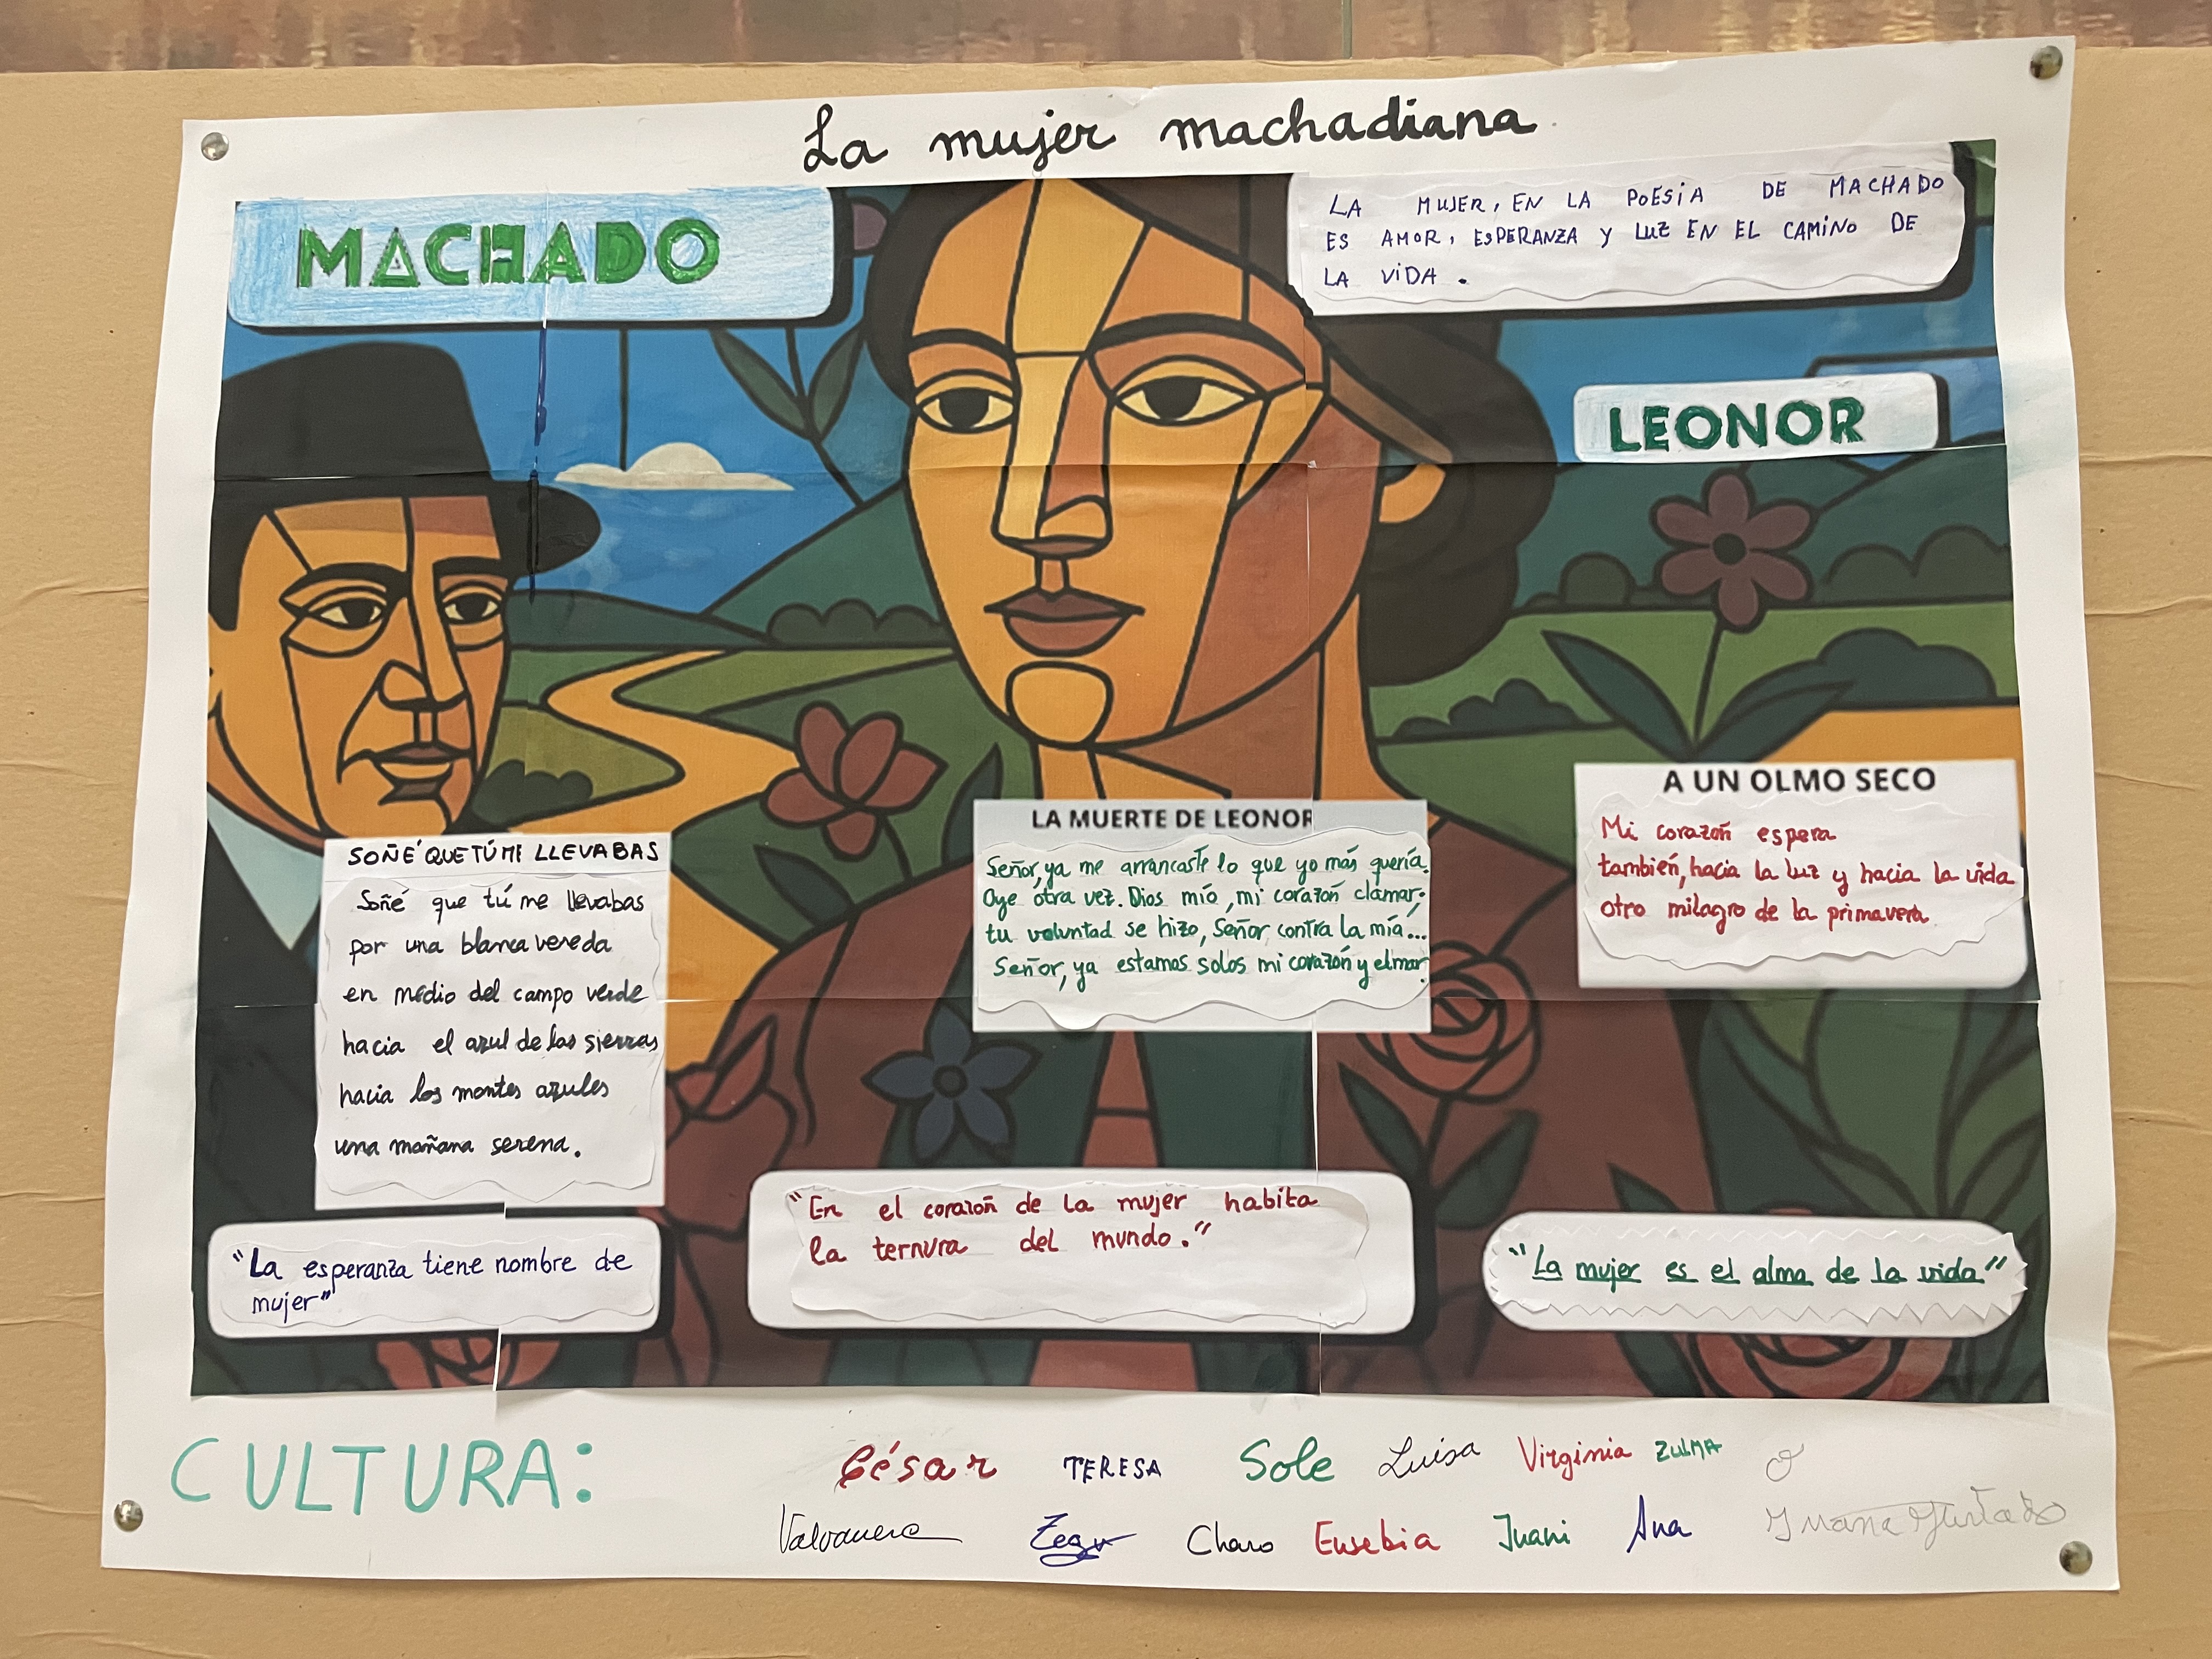 La mujer machadiana
MACHADO
LA MUJER, EN LA POESÍA DE MACHADO
ES AMOR, ESPERANZA Y LUZ EN EL CAMINO DE
LA VIDA.
LEONOR
SOÑÉ QUE TÚ ME LLEVABAS
Soñé que tú me llevabas
por una blanca vereda
en medio del campo verde
hacia el azul de las sierras
hacia los montes azules
una mañana serena.
LA MUERTE DE LEONOR
Señor, ya me arrancaste lo que yo más quería.
Oye otra vez. Dios mío, mi corazón clamar.
tu voluntad se hizo, Señor contra la mía...
Señor, ya estamos solos mi corazón y el mar.
A UN OLMO SECO
Mi corazón espera
también, hacia la luz y hacia la vida
otro milagro de la primavera.
"La esperanza tiene nombre de
mujer"
"En el corazón de la mujer habita
la ternura del mundo."
"La mujer es el alma de la vida"
CULTURA:
César TERESA Sole Luisa Virginia ZULMA
Valvanera Charo Eusebia Juani Ana Juana Hurtado